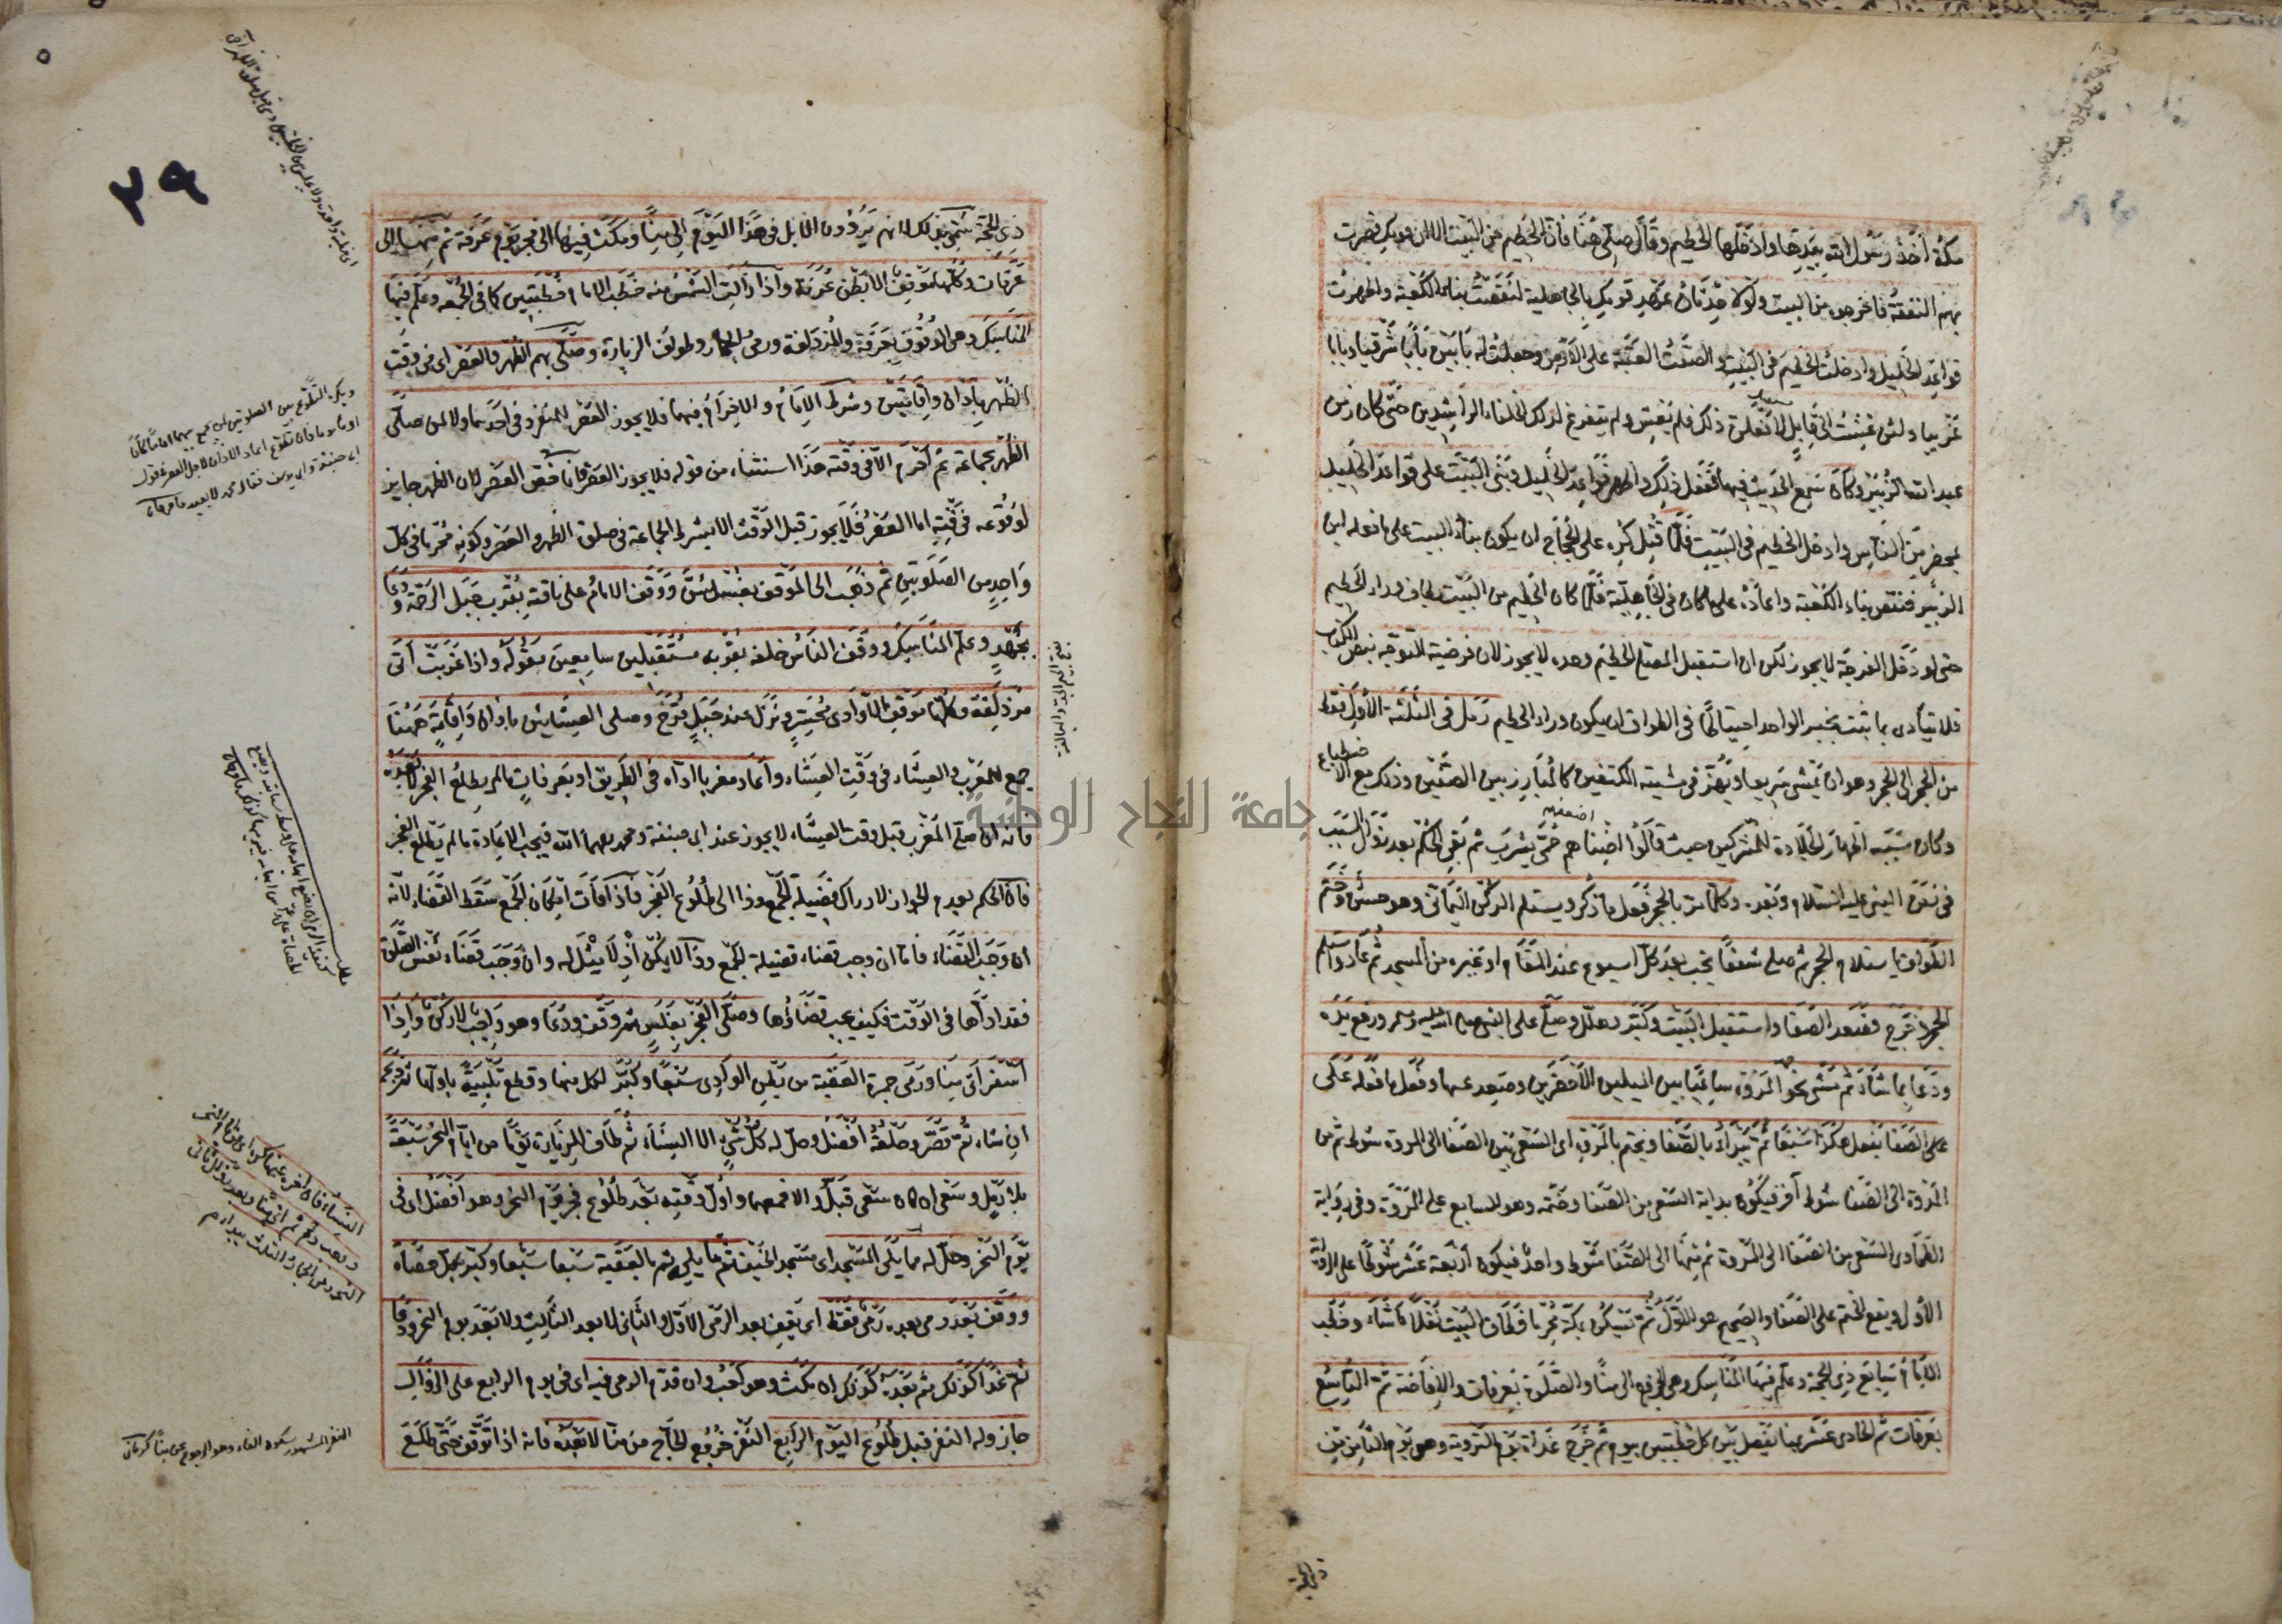 مكة اخذ رسول الله بيدها وادخلها الحطيم وقال صلى هنا فان الحطيم من البيت الا ان قومك قصرت
بهم النفقة فاخرجوه من البيت ولولا حدثان عهد قومك بالجاهلية لنقضت بناء الكعبة واظهرت
قواعد الخليل وادخلت الحطيم في البيت والصقت العتبة على الارض وجعلت له بابين بابا شرقيا وبابا
غربيا ولئن عشت الى قابل لافعلن ذلك فلم يعش ولم يتفرغ لذلك الخلفاء الراشدين حتى كان زمن
عبد الله الزبير وكان سمع الحديث فيها ففعل ذلك واظهر قواعد الخليل وبنى البيت على قواعد الخليل
بمحضر من الناس وادخل الحطيم في البيت فلما قتل كره على الحجاج ان يكون بناء البيت على ما فعله ابن
الزبير فنقض بناء الكعبة واعاده على ما كان في الجاهلية فلما كان الحطيم من البيت يطاف وراء الحطيم
حتى لو دخل الفرجة لا يجوز لكن ان استقبل المصلى الحطيم وحده لا يجوز لان فرضية التوجه بنص الكتاب
فلا يتادى بما ثبت بخبر الواحد احتياطا في الطواف ان يكون وراء الحطيم رمل في الثلثة الاول فقط
من الحجر الى الحجر وهو ان يمشي سريعا ويهز في مشيته الكتفين كالمبارز بين الصفين وذلك مع الاضطباع
وكان سببه اظهار الجلادة للمشركين حيث قالوا اضناهم حمى يثرب ثم بقي الحكم بعد زوال السبب
في زمن النبي عليه السلام وبعده وكلما مر بالحجر فعل ما ذكر ويستلم الركن اليماني وهو حسن وختم
الطواف باستلام الحجر ثم صلى شفعا يجب بعد كل اسبوع عند المقام او غيره من المسجد ثم عاد واستلم
الحجر وخرج فصعد الصفا واستقبل البيت وكبر وهلل وصلى على النبي صلى الله عليه وسلم ورفع يديه
ودعا بما شاء ثم مشى نحو المروة ساعيا بين الميلين الاخضرين وصعد عليها وفعل ما فعله على
على الصفا يفعل هكذا سبعا ثم يبدأ بالصفا ويختم بالمروة اي السعي بين الصفا الى المروة شوط ثم من
المروة الى الصفا شوط آخر فيكون بداية السعي من الصفا وختمه وهو السابع على المروة وفي رواية
الطحاوي السعي من الصفا الى المروة ثم منها الى الصفا شوط واحد فيكون اربعة عشر شوطا على الرواية
الاول ويقع الختم على الصفا والصحيح هو الاول ثم يسكن بمكة محرما وطاف البيت نفلا ما شاء وخطب
الامام سابع ذي الحجة وعلم فيها المناسك وهي الخروج الى منا والصلوة بعرفات والافاضة ثم التاسع
بعرفات ثم الحادي عشر بمنا يفصل بين كل خطبتين بيوم ثم خرج غداة يوم التروية وهو يوم الثامن من
ذي الحجة
٣٩
ذي الحجة سمي بذلك لانهم يروون الابل في هذا اليوم الى منا ومكث فيها الى فجر يوم عرفة ثم منها الى
عرفات وكلها موقف الا بطن عرنة واذا زالت الشمس منه خطب الامام خطبتين كما في الجمعة وعلم فيها
المناسك وهي الوقوف بعرفة والمزدلفة ورمي الجمار وطواف الزيارة وصلى بهم الظهر والعصر اي في وقت
الظهر باذان واقامتين وشرط الامام والاحرام فيهما فلا يجوز العصر للمنفرد في احدهما ولا لمن صلى
الظهر بجماعة ثم احرم الا في وقته هذا استثناء من قوله فلا يجوز العصر فانما خص العصر لان الظهر جايز
لوقوعه في وقته اما العصر فلا يجوز قبل الوقت الا بشرط الجماعة في صلوة الظهر والعصر وكونه محرما في كل
واحد من الصلوتين ثم ذهب الى الموقف بغسل سن ووقف الامام على ناقته بقرب جبل الرحمة ودعا
بجهد وعلم المناسك ووقف الناس خلفه بقربه مستقبلين سامعين مقوله واذا غربت اتى
مزدلفة وكلها موقف الا وادي محسر ونزل عند جبل قزح وصلى العشائين باذان واقامة ههنا
جمع المغرب والعشاء في وقت العشاء واعاد مغربا اداه في الطريق او بعرفات ما لم يطلع الفجر لا بعده
فانه ان صلى المغرب قبل وقت العشاء لا يجوز عند ابي حنيفة ومحمد رحمهما الله فيجب الاعادة ما لم يطلع الفجر
فان الحكم بعدم الجواز لادراك فضيلة الجمع وذا الى طلوع الفجر فاذا فات امكان الجمع سقط القضاء لانه
ان وجب القضاء فاما ان وجب قضاء فضيلة الجمع وذا لا يمكن اذ لا مثل له وان وجب قضاء نفس الصلوة
فقد اداها في الوقت فكيف يجب قضاؤها وصلى الفجر بغلس ثم وقف ودعا وهو واجب لا ركن واذا
اسفر اتى منا ورمى جمرة العقبة من بطن الوادي سبعا وكبر لكل منها وقطع تلبيته باولها ثم ذبح
ان شاء ثم قصر وحلقه افضل وحل له كل شيء الا النساء ثم طاف للزيارة يوما من ايام النحر سبعة
بلا رمل وسعي ان كان سعى قبل والا فمعهما واول وقته بعد طلوع فجر يوم النحر وهو افضل اي في
يوم النحر وحل له مما يلي المسجد اي مسجد الخيف ثم ما يليه ثم بالعقبة سبعا سبعا وكبر بكل حصاة
ووقف بعد رمي بعده رمي فقط اي يقف بعد الرمي الاول والثاني لا بعد الثالث ولا بعد يوم النحر ودعا
ثم غدا كذلك ثم بعده كذلك ان مكث وهو احب وان قدم الرمي فيه اي في يوم الرابع على الزوال
جاز وله النفر قبل طلوع اليوم الرابع النفر خروج الحاج من منا لا بعده فانه اذا توقف حتى طلع
النفر المشهور سكون الفاء وهو الرجوع من منا